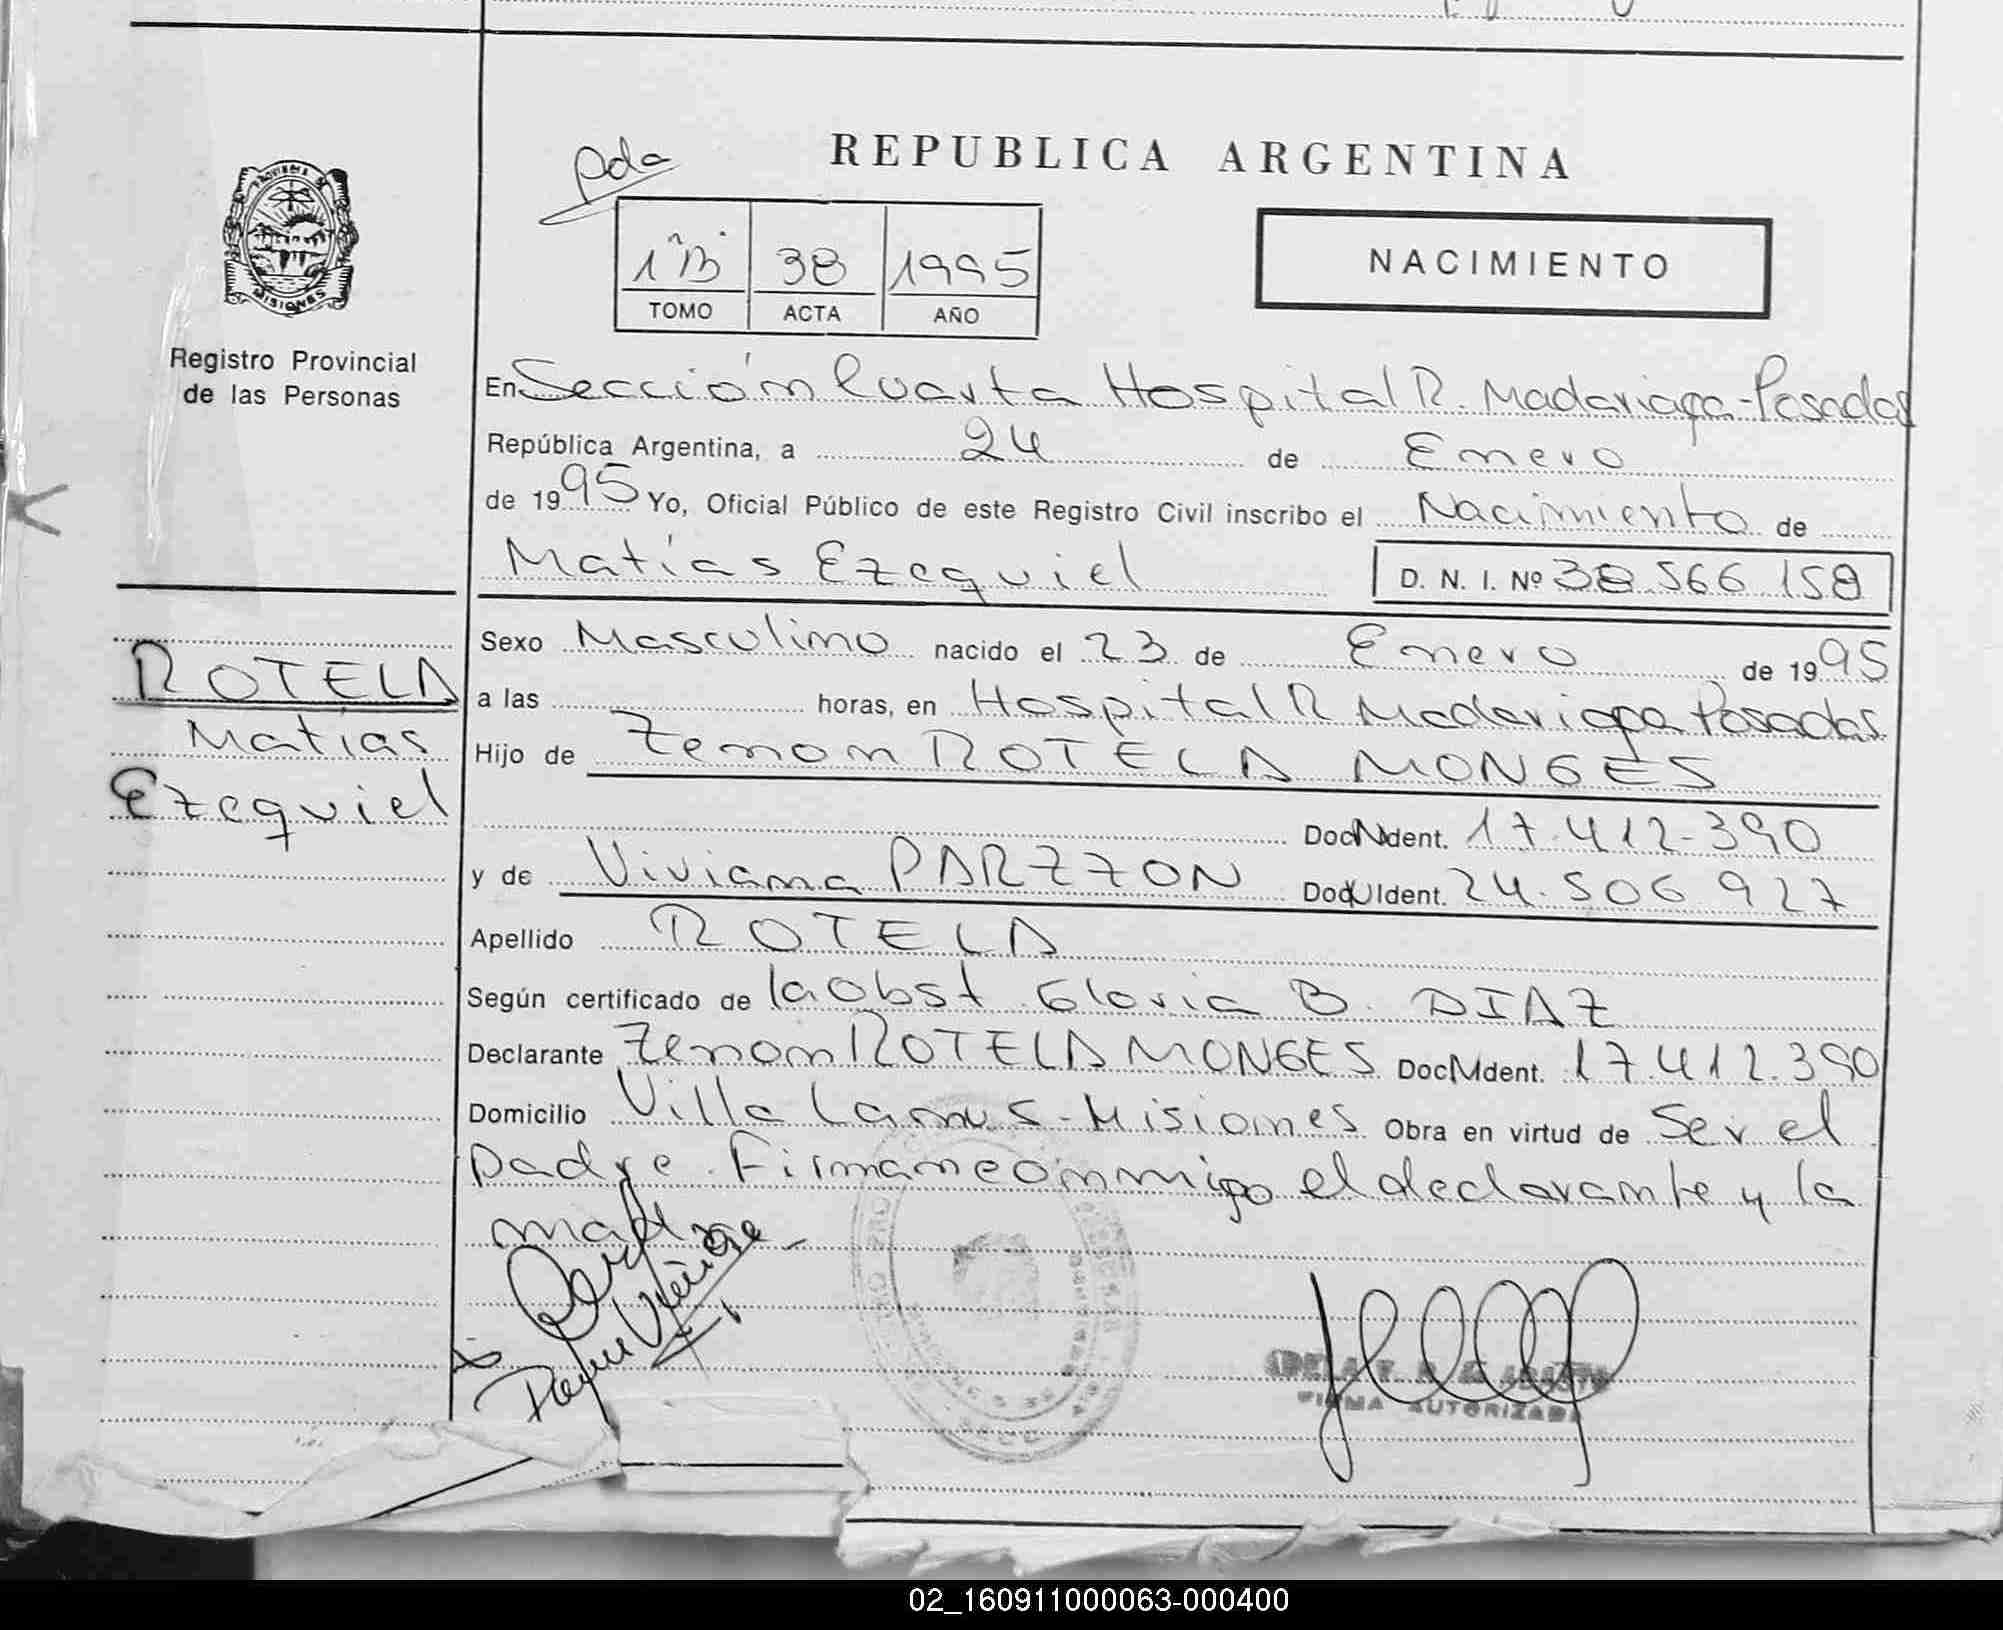 pda
REPUBLICA ARGENTINA
1ºB 38 1995
TOMO ACTA AÑO
NACIMIENTO
MISIONES
Registro Provincial
de las Personas
En Sección Cuarta Hospital R. Madariaga-Posadas
República Argentina, a 24 de Enero
de 1995 Yo, Oficial Público de este Registro Civil inscribo el Nacimiento de
Matías Ezequiel D. N. I. Nº 38.566.158
ROTELA
Matías
Ezequiel
Sexo Masculino nacido el 23 de Enero de 1995
a las horas, en Hospital R Madariaga Posadas
Hijo de Zenon ROTELA MONGES
Doc N Ident. 17.412.390
y de Viviana PARZZON Doc U Ident. 24.506.927
Apellido ROTELA
Según certificado de la Obst Gloria B. DIAZ
Declarante Zenon ROTELA MONGES Doc N Ident. 17.412.390
Domicilio Villa Lanus-Misiones Obra en virtud de Ser el
padre. Firman conmigo el declarante y la
madre-
FIRMA AUTORIZADA
02_160911000063-000400